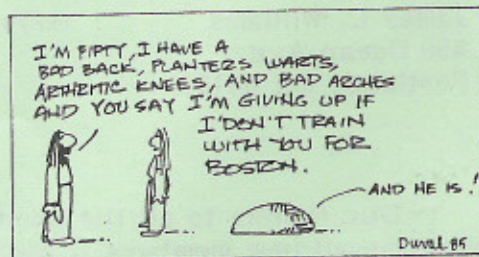 I'M FIFTY, I HAVE A
BAD BACK, PLANTERS WARTS,
ARTHRITIC KNEES, AND BAD ARCHES
AND YOU SAY I'M GIVING UP IF
I DON'T TRAIN
WITH YOU FOR
BOSTON.
AND HE IS!
Duval 85